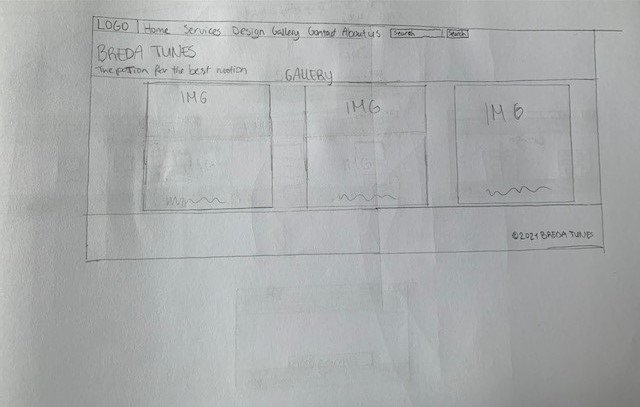 LOGO Home Services Design Gallery Contact About us Search Search
BREDA TUNES
The potion for the best notion
GALLERY
IMG IMG IMG
©2021 BREDA TUNES